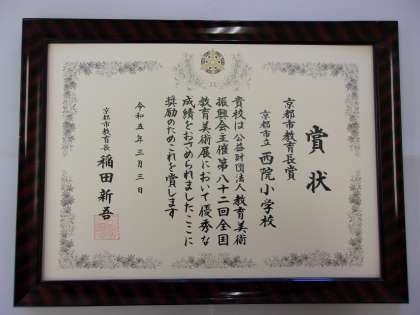 賞状
京都市教育長賞
京都市立 西院小学校
貴校は公益財団法人教育美術
振興会主催第八十二回全国
教育美術展において優秀な
成績をおさめられましたここに
奨励のためこれを賞します
令和五年三月三日
京都市教育長 稲田新吾